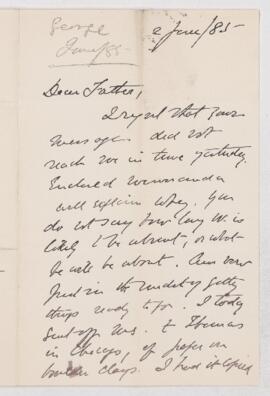 George
June/85
2 June/85
Dear Father,
I regret that your
messages did not
reach me in time yesterday.
Enclosed memoranda
will explain why. You
do not say how long W. is
likely to be absent, or what
he will be about. Am now
just in the midst of getting
things ready to go. I today
sent off Ms. to Thomas
in Chicago, of paper on
clays. I had it copied